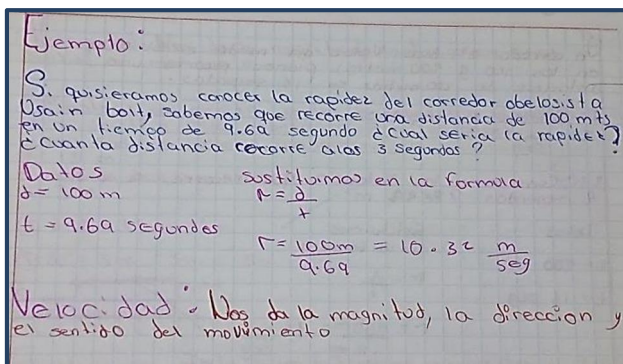 Ejemplo:
Si quisieramos conocer la rapidez del corredor obelosista
Usain bolt, sabemos que recorre una distancia de 100 mts
en un tiempo de 9.69 segundo ¿cual seria la rapidez?
¿cuanta distancia recorre alas 3 segundos?
Datos sustituimos en la formula
d= 100 m r = d/t
t = 9.69 segundos
r = 100m/9.69 = 10.32 m/seg
Velocidad: Nos da la magnitud, la direccion y
el sentido del movimiento